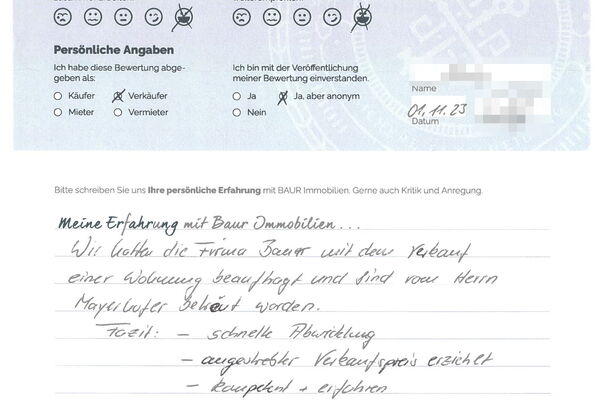 Persönliche Angaben
Ich habe diese Bewertung abge-
geben als:
Käufer
Verkäufer
Mieter
Vermieter
Ich bin mit der Veröffentlichung
meiner Bewertung einverstanden.
Ja
Ja, aber anonym
Nein
Name
01.11.23
Datum
Bitte schreiben Sie uns Ihre persönliche Erfahrung mit BAUR Immobilien. Gerne auch Kritik und Anregung.
Meine Erfahrung mit Baur Immobilien...
Wir hatten die Firma Bauer mit dem Verkauf
einer Wohnung beauftragt und sind vom Herrn
Mayerhofer betreut worden.
Fazit: - schnelle Abwicklung
- angestrebter Verkaufspreis erzielt
- kompetent + erfahren